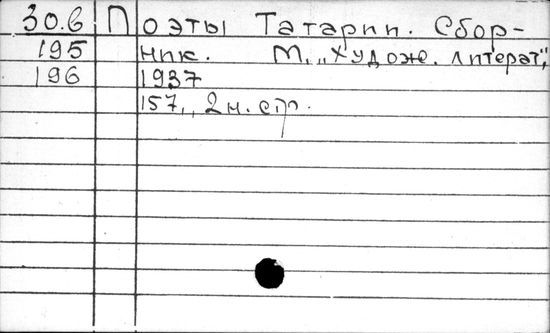 30.6 Поэты Татарии. Сбор-
195 ник. М., „Художе. литерат",
196 1937
157, 2 н. стр.